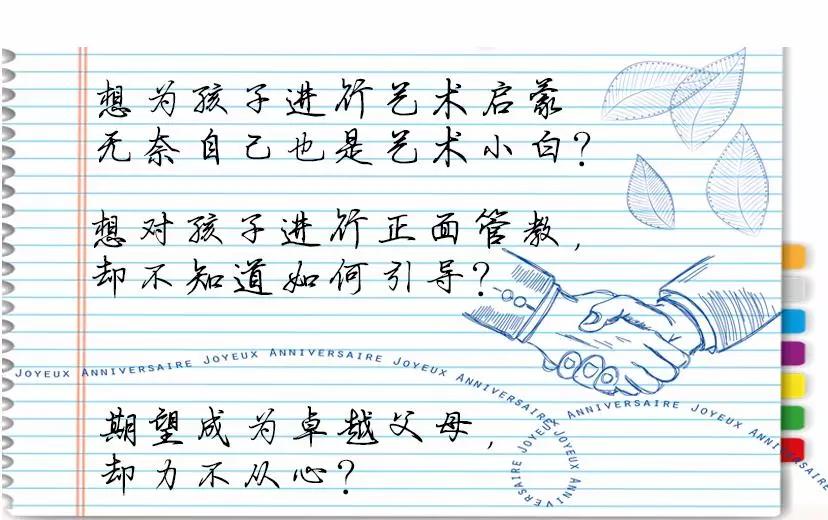 想为孩子进行艺术启蒙
无奈自己也是艺术小白?
想对孩子进行正面管教,
却不知道如何引导?
JOYEUX ANNIVERSAIRE JOYEUX ANNIVERSAIRE JOYEUX ANNIVERSAIRE JOYEUX ANNIVERSAIRE JOYEUX ANNIVERSAIRE JOYEUX ANNIVERSAIRE
期望成为卓越父母,
却力不从心?